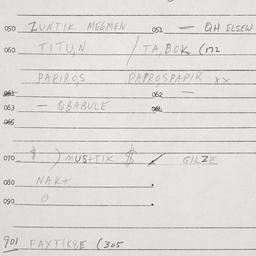 050 ZUNTIK MEGMEN 051 — QH ELSEW
060 TITU,N / TA,BOK (172
PAPIROS, PAPROSPAPIR xx
062 —
063 — QBABULE
065
070 $ ) MUS+TIK $ / GILZE
080 NAR+
090 0
901 FAXTIKSE (305